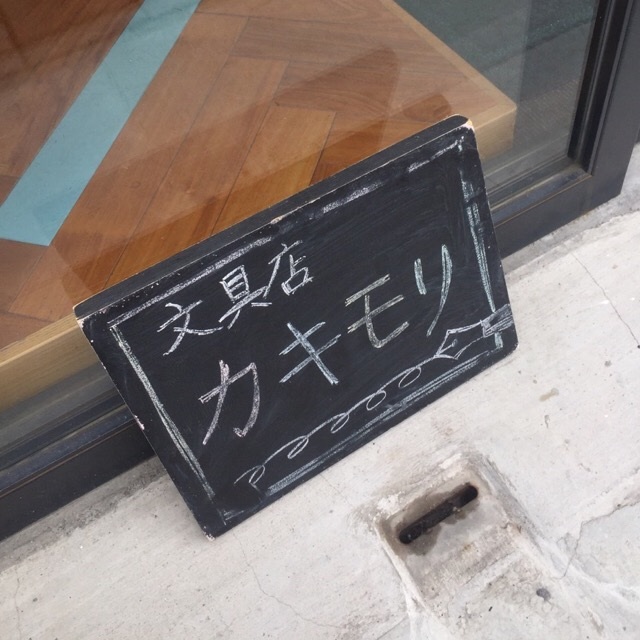 文具店
カキモリ